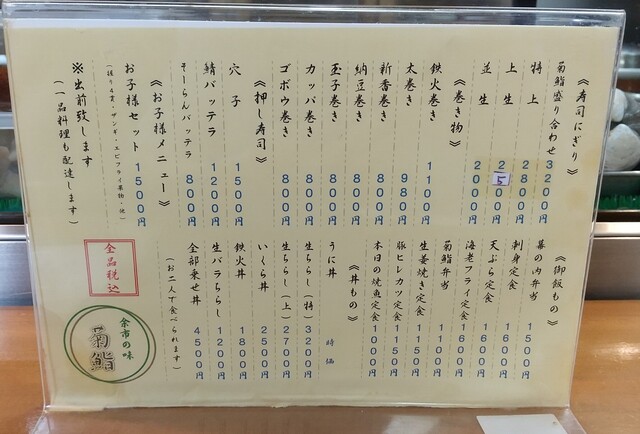 《寿司にぎり》
菊鮨盛り合わせ 3200円
特上 2800円
上生 2500円
並生 2000円
《巻き物》
鉄火巻き 1100円
太巻き 980円
新香巻き 800円
納豆巻き 800円
玉子巻き 800円
カッパ巻き 800円
ゴボウ巻き 800円
《押し寿司》
穴子 1500円
鯖バッテラ 1200円
そーらんバッテラ 800円
《お子様メニュー》
お子様セット 1500円
※出前致します
(一品料理も配達します)
《御飯もの》
幕の内弁当 1500円
刺身定食 1600円
天ぷら定食 1600円
海老フライ定食 1600円
菊鮨弁当 1100円
生姜焼き定食 1100円
豚ヒレカツ定食 1150円
本日の焼魚定食 1000円
《丼もの》
うに丼 時価
生ちらし(特) 3200円
生ちらし(上) 2700円
いくら丼 2500円
鉄火丼 1800円
生バラちらし 1200円
全部乗せ丼 4500円
(お二人で食べられます)
全品税込
余市の味
菊鮨